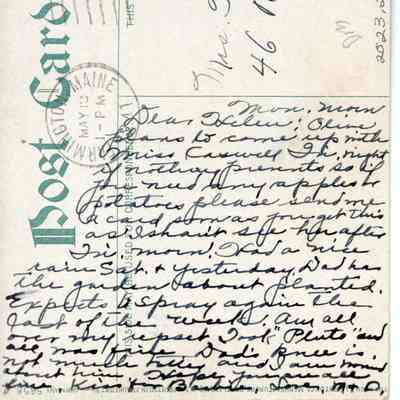 Post Card
FARMINGTON MAINE
MAY 13
1 - PM
Mrs.
46
2023.2
Mon. morn
Dear Helen: Olive
plans to come up with
Miss Caswell Fri. night
if nothing prevents so if
you need any apples or
potatoes please send me
a card soon as you get this
as I shan't see her after
Fri morn. Had a nice
rain Sat. & yesterday. Dad has
the garden about planted.
Expects to spray again the
last of the week. Am all
over my upset. Took "Pluto" and
all was fine. Dad's knee is
not much
about him. Hope you are all
fine. Kiss for Love M & D.